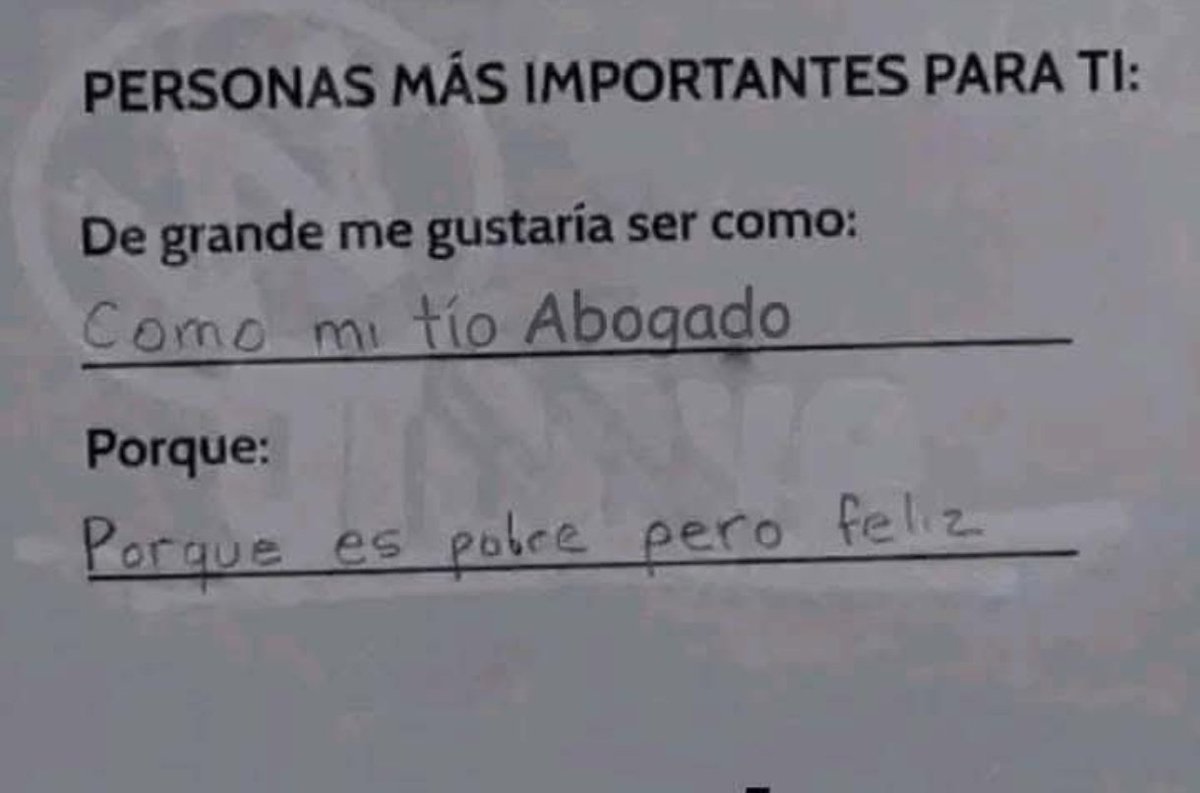 PERSONAS MÁS IMPORTANTES PARA TI:
De grande me gustaría ser como:
Como mi tío Abogado
Porque:
Porque es pobre pero feliz